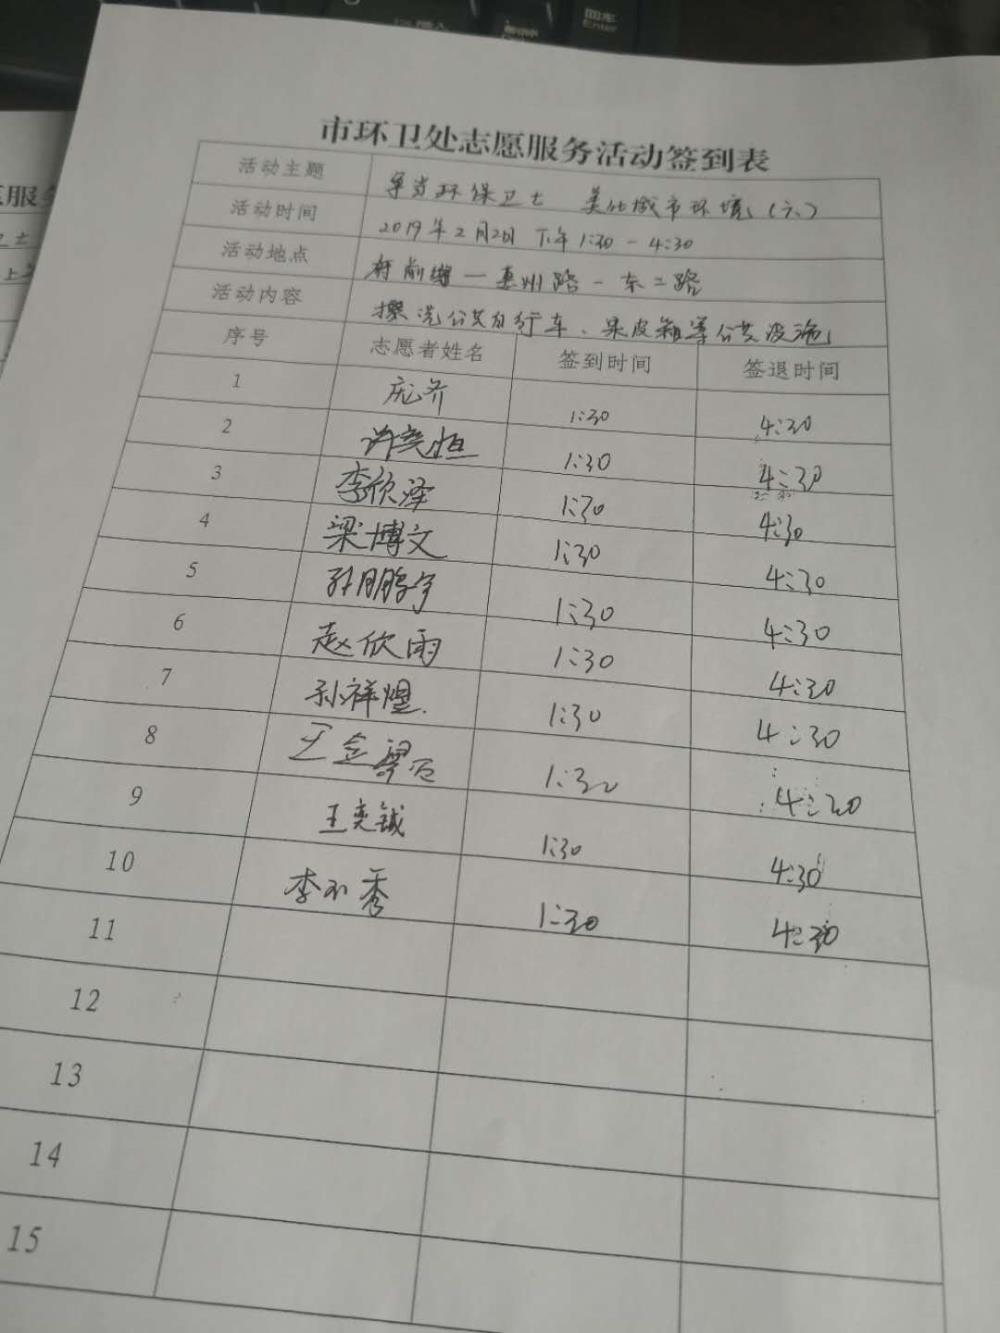 市环卫处志愿服务活动签到表
活动主题 争当环保卫士 美化城市环境(六)
活动时间 2019年2月2日 下午1:30-4:30
活动地点 府前街-惠州路-东二路
活动内容 擦洗公共自行车、果皮箱等公共设施
序号 志愿者姓名 签到时间 签退时间
1 庞齐 1:30 4:30
2 许奕恒 1:30 4:30
3 李欣泽 1:30 4:30
4 梁博文 1:30 4:30
5 孙鹏宇 1:30 4:30
6 赵欣雨 1:30 4:30
7 孙祥煜 1:30 4:30
8 王金 1:30 4:30
9 王奕铖 1:30 4:30
10 李小秀 1:30 4:30
11
12
13
14
15